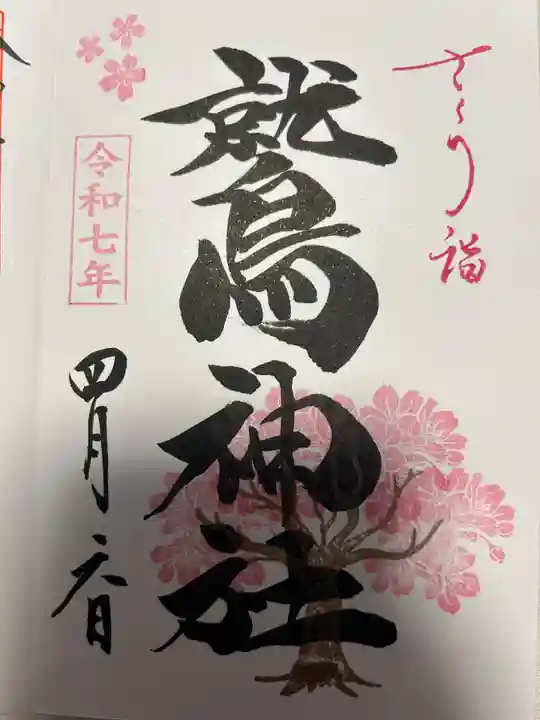 さくら詣
鷲神社
令和七年
四月六日